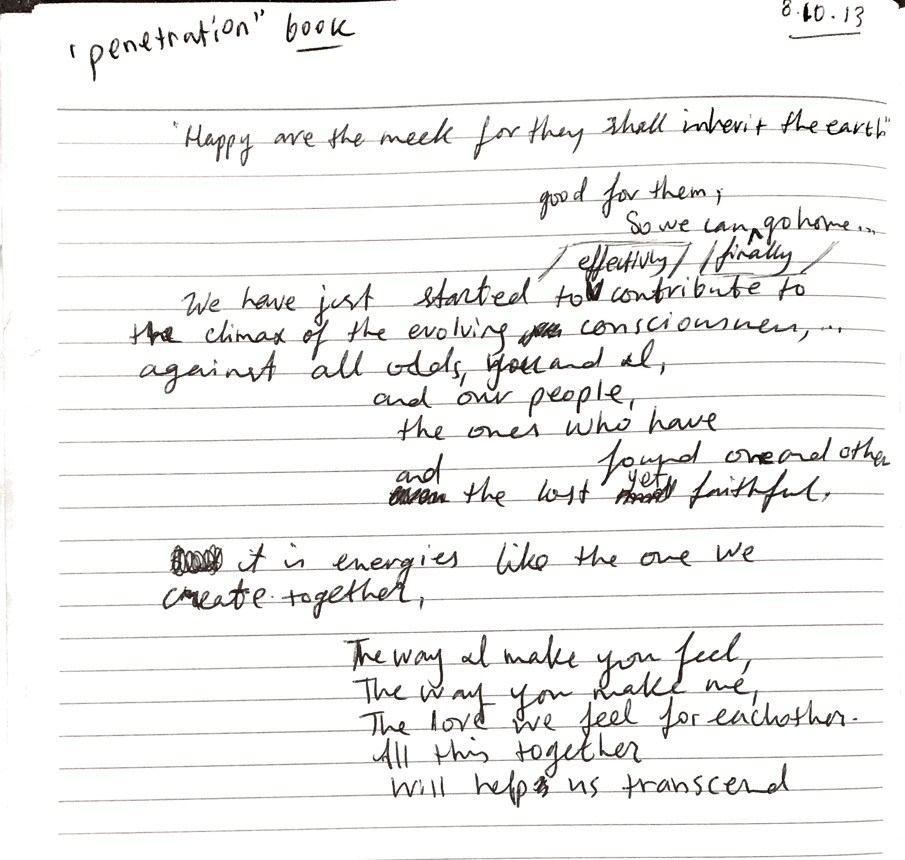 8.10.13
"penetration" book
"Happy are the meek for they shall inherit the earth"
good for them;
So we can go home...
effectively / finally
We have just started to contribute to
the climax of the evolving consciousness,...
against all odds, you and I,
and our people,
the ones who have
found one and other
and the lost yet faithful.
it is energies like the one we
create together,
The way I make you feel,
The way you make me,
The love we feel for eachother.
All this together
Will help us transcend